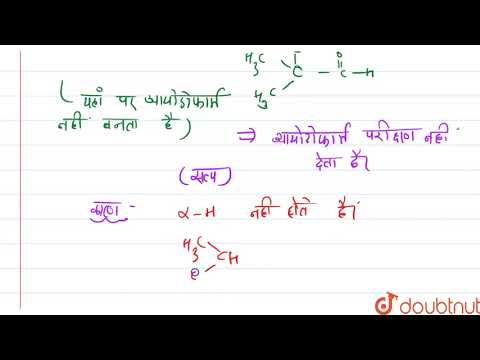 H3C I O
C – C – H
H3C
( यहां पर आयोडोफार्म
नहीं बनता है )
⇒ आयोडोफार्म परीक्षण नहीं
देता है।
(सत्य)
कारण - α-H नहीं होते है।
H3C
CH
doubtnut